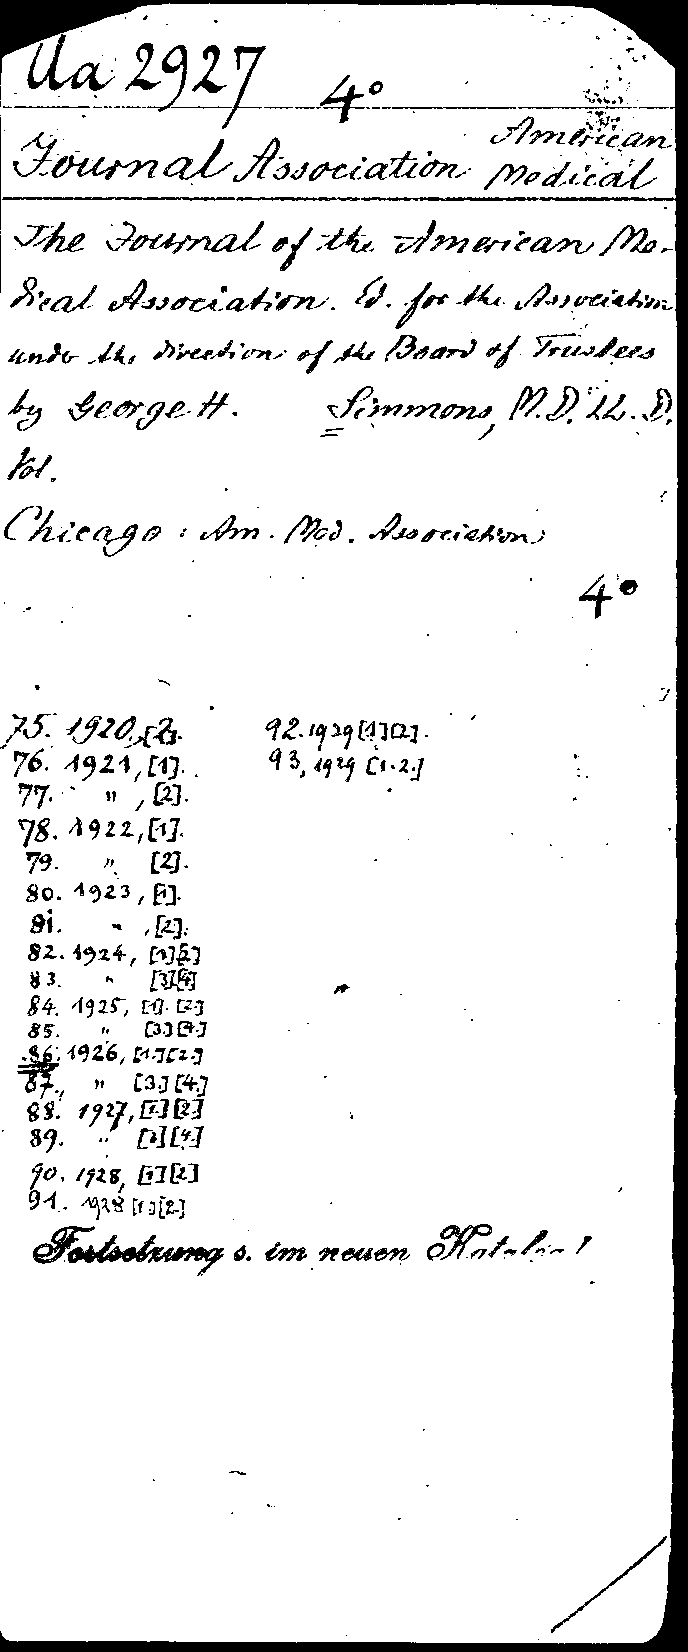 Ua 2927 4°
Journal Association American Medical
The Journal of the American Me-
dical Association. Ed. for the Association
under the direction of the Board of Trustees
by George H. Simmons, M.D. LL. D.
Vol.
Chicago: Am. Med. Association
4°
75. 1920, [2].
76. 1921, [1].
77. " , [2].
78. 1922, [1].
79. " [2].
80. 1923, [1].
81. " , [2].
82. 1924, [1][2]
83. " [3][4]
84. 1925, [1]. [2.]
85. " [3.] [4.]
86. 1926, [1.] [2.]
87., " [3.] [4.]
88. 1927, [1.] [2]
89. " [3] [4.]
90. 1928, [1] [2]
91. 1928 [1.] [2.]
92. 1929 [1] [2].
93, 1929 [1. 2.]
Fortsetzung s. im neuen Katalog!